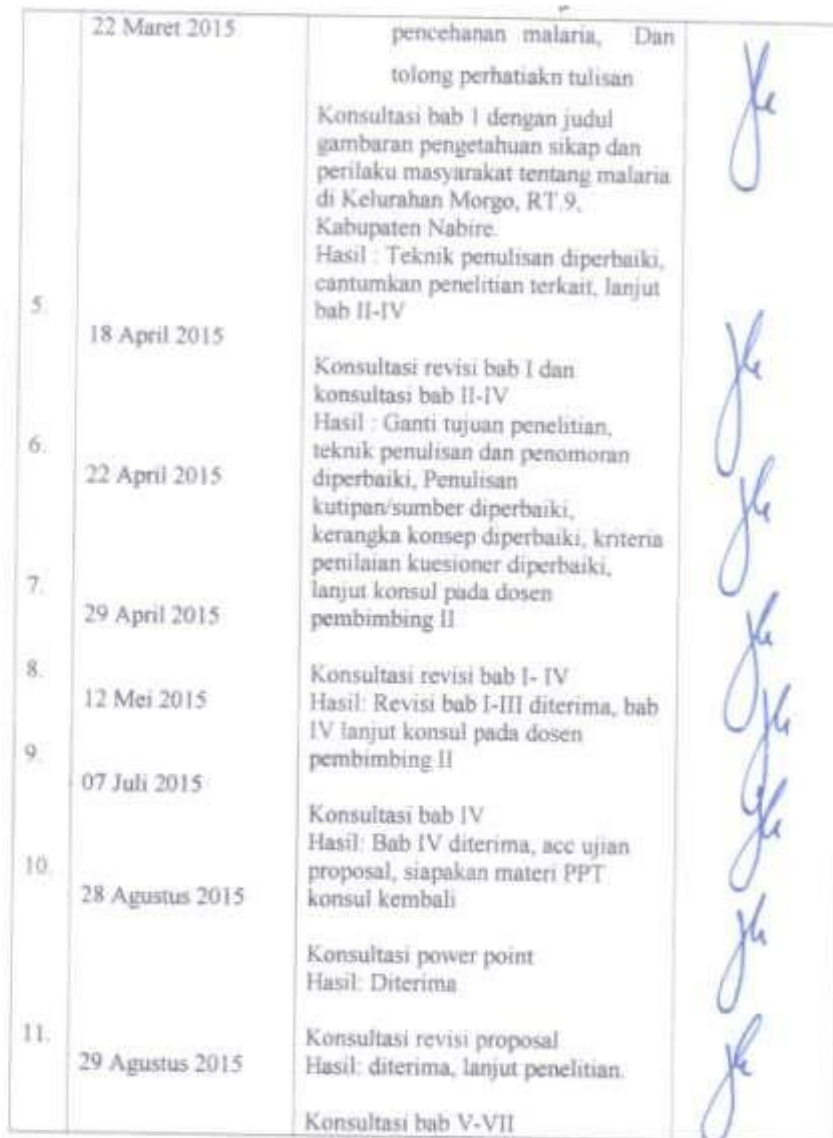 22 Maret 2015
pencehanan malaria, Dan
tolong perhatiakn tulisan
Konsultasi bab 1 dengan judul
gambaran pengetahuan sikap dan
perilaku masyarakat tentang malaria
di Kelurahan Morgo, RT.9,
Kabupaten Nabire.
Hasil : Teknik penulisan diperbaiki,
cantumkan penelitian terkait, lanjut
bab II-IV
5.
18 April 2015
Konsultasi revisi bab I dan
konsultasi bab II-IV
Hasil : Ganti tujuan penelitian,
teknik penulisan dan penomoran
diperbaiki, Penulisan
kutipan/sumber diperbaiki,
kerangka konsep diperbaiki, kriteria
penilaian kuesioner diperbaiki,
lanjut konsul pada dosen
pembimbing II
6.
22 April 2015
7.
29 April 2015
Konsultasi revisi bab I- IV
Hasil: Revisi bab I-III diterima, bab
IV lanjut konsul pada dosen
pembimbing II
8.
12 Mei 2015
9.
07 Juli 2015
Konsultasi bab IV
Hasil: Bab IV diterima, acc ujian
proposal, siapakan materi PPT
konsul kembali
10.
28 Agustus 2015
Konsultasi power point
Hasil: Diterima
11.
29 Agustus 2015
Konsultasi revisi proposal
Hasil: diterima, lanjut penelitian.
Konsultasi bab V-VII